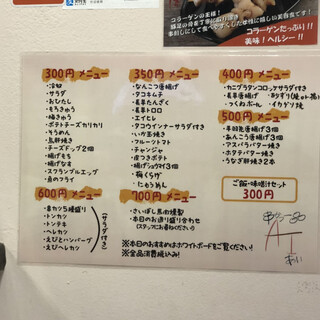 コラーゲンの王様！
コラーゲンたっぷり!!
美味！ヘルシー!!
300円 メニュー
・冷奴
・サラダ
・おひたし
・もろきゅう
・梅きゅう
・ポテトチーズカリカリ
・そうめん
・鳥肝焼き
・チーズドッグ2個
・揚げもち
・揚げなす
・スクランブルエッグ
350円 メニュー
・なんこつ唐揚げ
・タコキムチ
・長芋たんざく
・長芋トロロ
・エイヒレ
・タコウインナー(サラダ付き)
・いか玉焼き
・フルーツトマト
・チャンジャ
・皮つきポテト
・揚げシュウマイ3個
・梅くらげ
・にゅうめん
400円 メニュー
・カニグラタンコロッケ(サラダ付き)
・長芋唐揚げ
・つくねボール
・イカゲソ焼
500円 メニュー
・手羽先唐揚げ3個
・あんこう唐揚げ3個
・アスパラバター焼き
・ホタテバター焼き
・うなぎ肝焼き2本
ご飯・味噌汁セット
300円
600円 メニュー
・串カツ5種盛り
・トンカツ
・トンテキ
・ヘレカツ
・えびとハンバーグ
・えびヘレカツ
(サラダ付き)
700円 メニュー
・さいぼし馬肉燻製
・本日のお造り盛り合わせ
(スタッフにお尋ねください)
※本日のおすすめはホワイトボードをご覧ください！
※全品消費税込み！